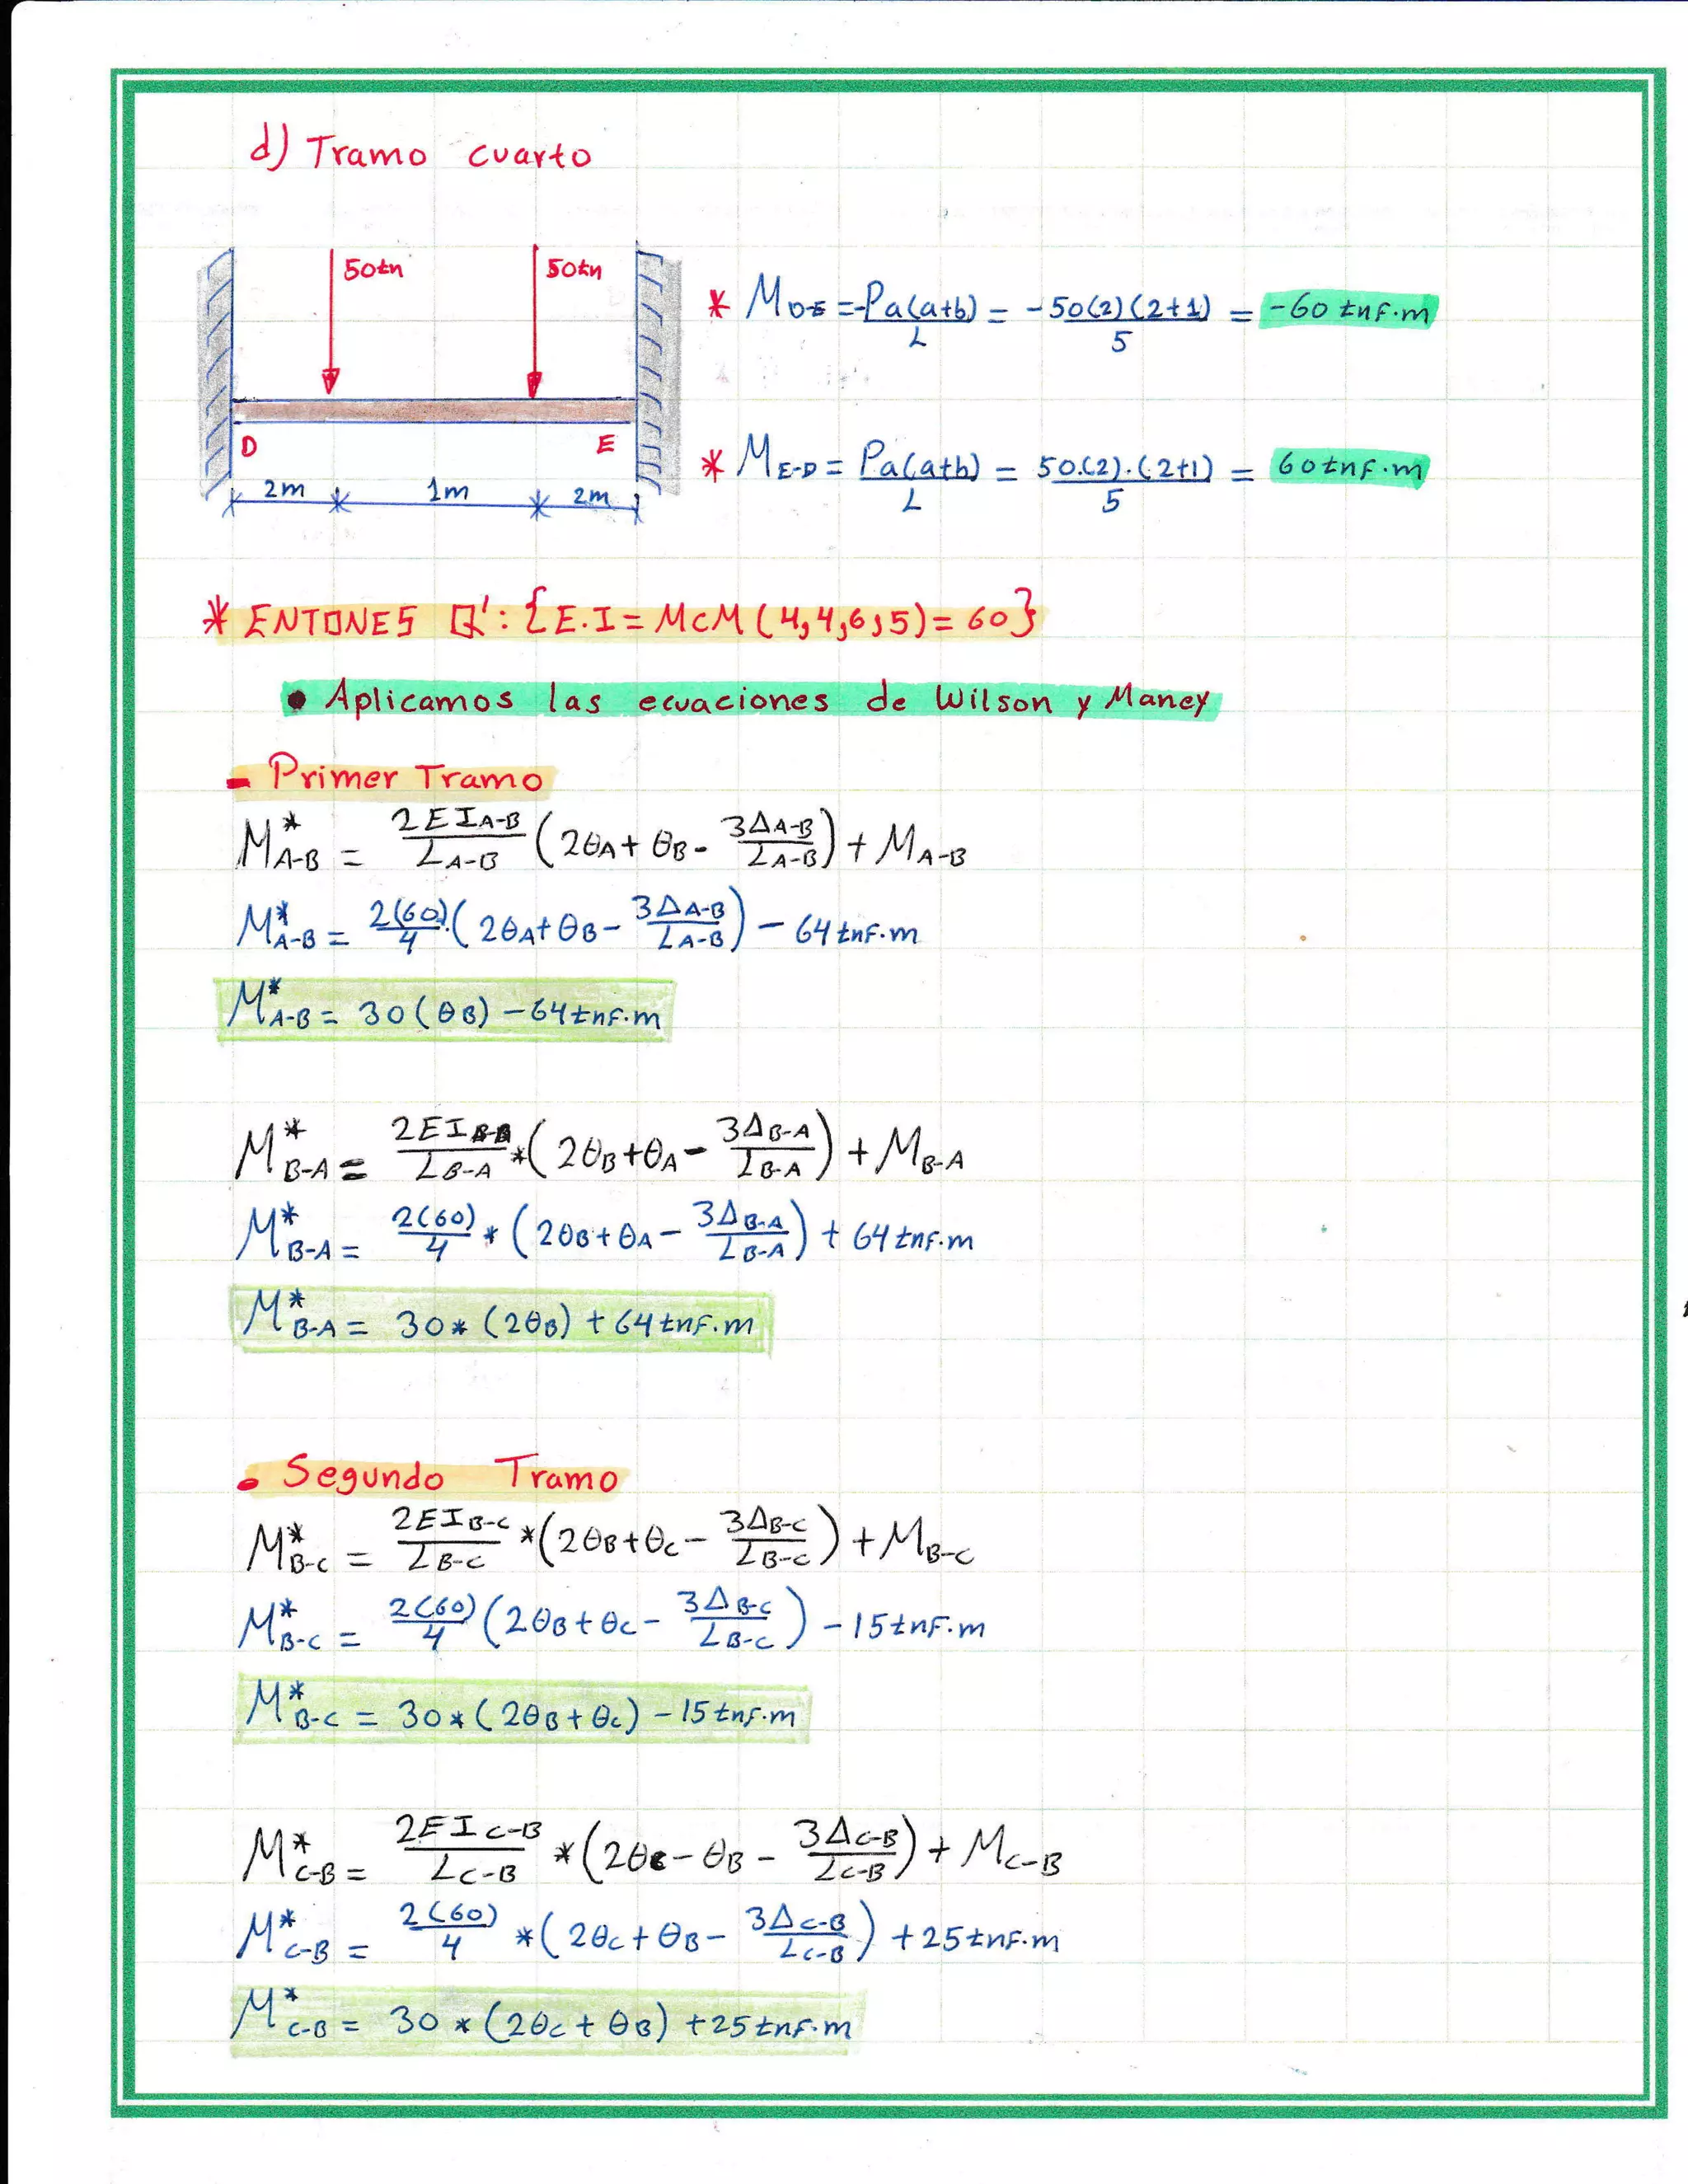 d) Tramo cuarto
50tn 50tn
* M D-E = -Pa(a+b)/L = -50(2)(2+1)/5 = -60 tnf.m
D E
* M E-D = Pa(a+b)/L = 50.(2).(2+1)/5 = 60tnf.m
2m 1m 2m
* ENTONES Q': {E.I = McM (4,4,6,5) = 60}
• Aplicamos las ecuaciones de Wilson y Maney
- Primer Tramo
M* A-B = 2EI A-B/L A-B (2θA + θB - 3ΔA-B/L A-B) + M A-B
M* A-B = 2(60)/4.(2θA + θB - 3ΔA-B/L A-B) - 64 tnf.m
M* A-B = 30(θB) - 64tnf.m
M* B-A = 2EI/L B-A *(2θB + θA - 3ΔB-A/L B-A) + M B-A
M* B-A = 2(60)/4 * (2θB + θA - 3ΔB-A/L B-A) + 64 tnf.m
M* B-A = 30* (2θB) + 64tnf.m
• Segundo Tramo
M* B-C = 2EI B-C/L B-C *(2θB + θC - 3ΔB-C/L B-C) + M B-C
M* B-C = 2(60)/4 (2θB + θC - 3ΔB-C/L B-C) - 15tnf.m
M* B-C = 30*(2θB + θC) - 15tnf.m
M* C-B = 2EI C-B/L C-B *(2θC - θB - 3ΔC-B/L C-B) + M C-B
M* C-B = 2(60)/4 *(2θC + θB - 3ΔC-B/L C-B) + 25tnf.m
M* C-B = 30 * (2θC + θB) + 25tnf.m